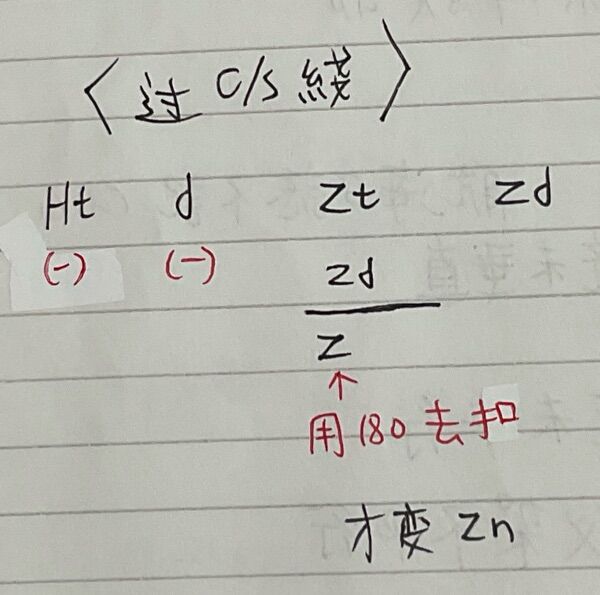 〈过 C/S 綫〉
Ht d Zt Zd
(-) (-) Zd
Z
↑
用 180 去扣
才变 Zn